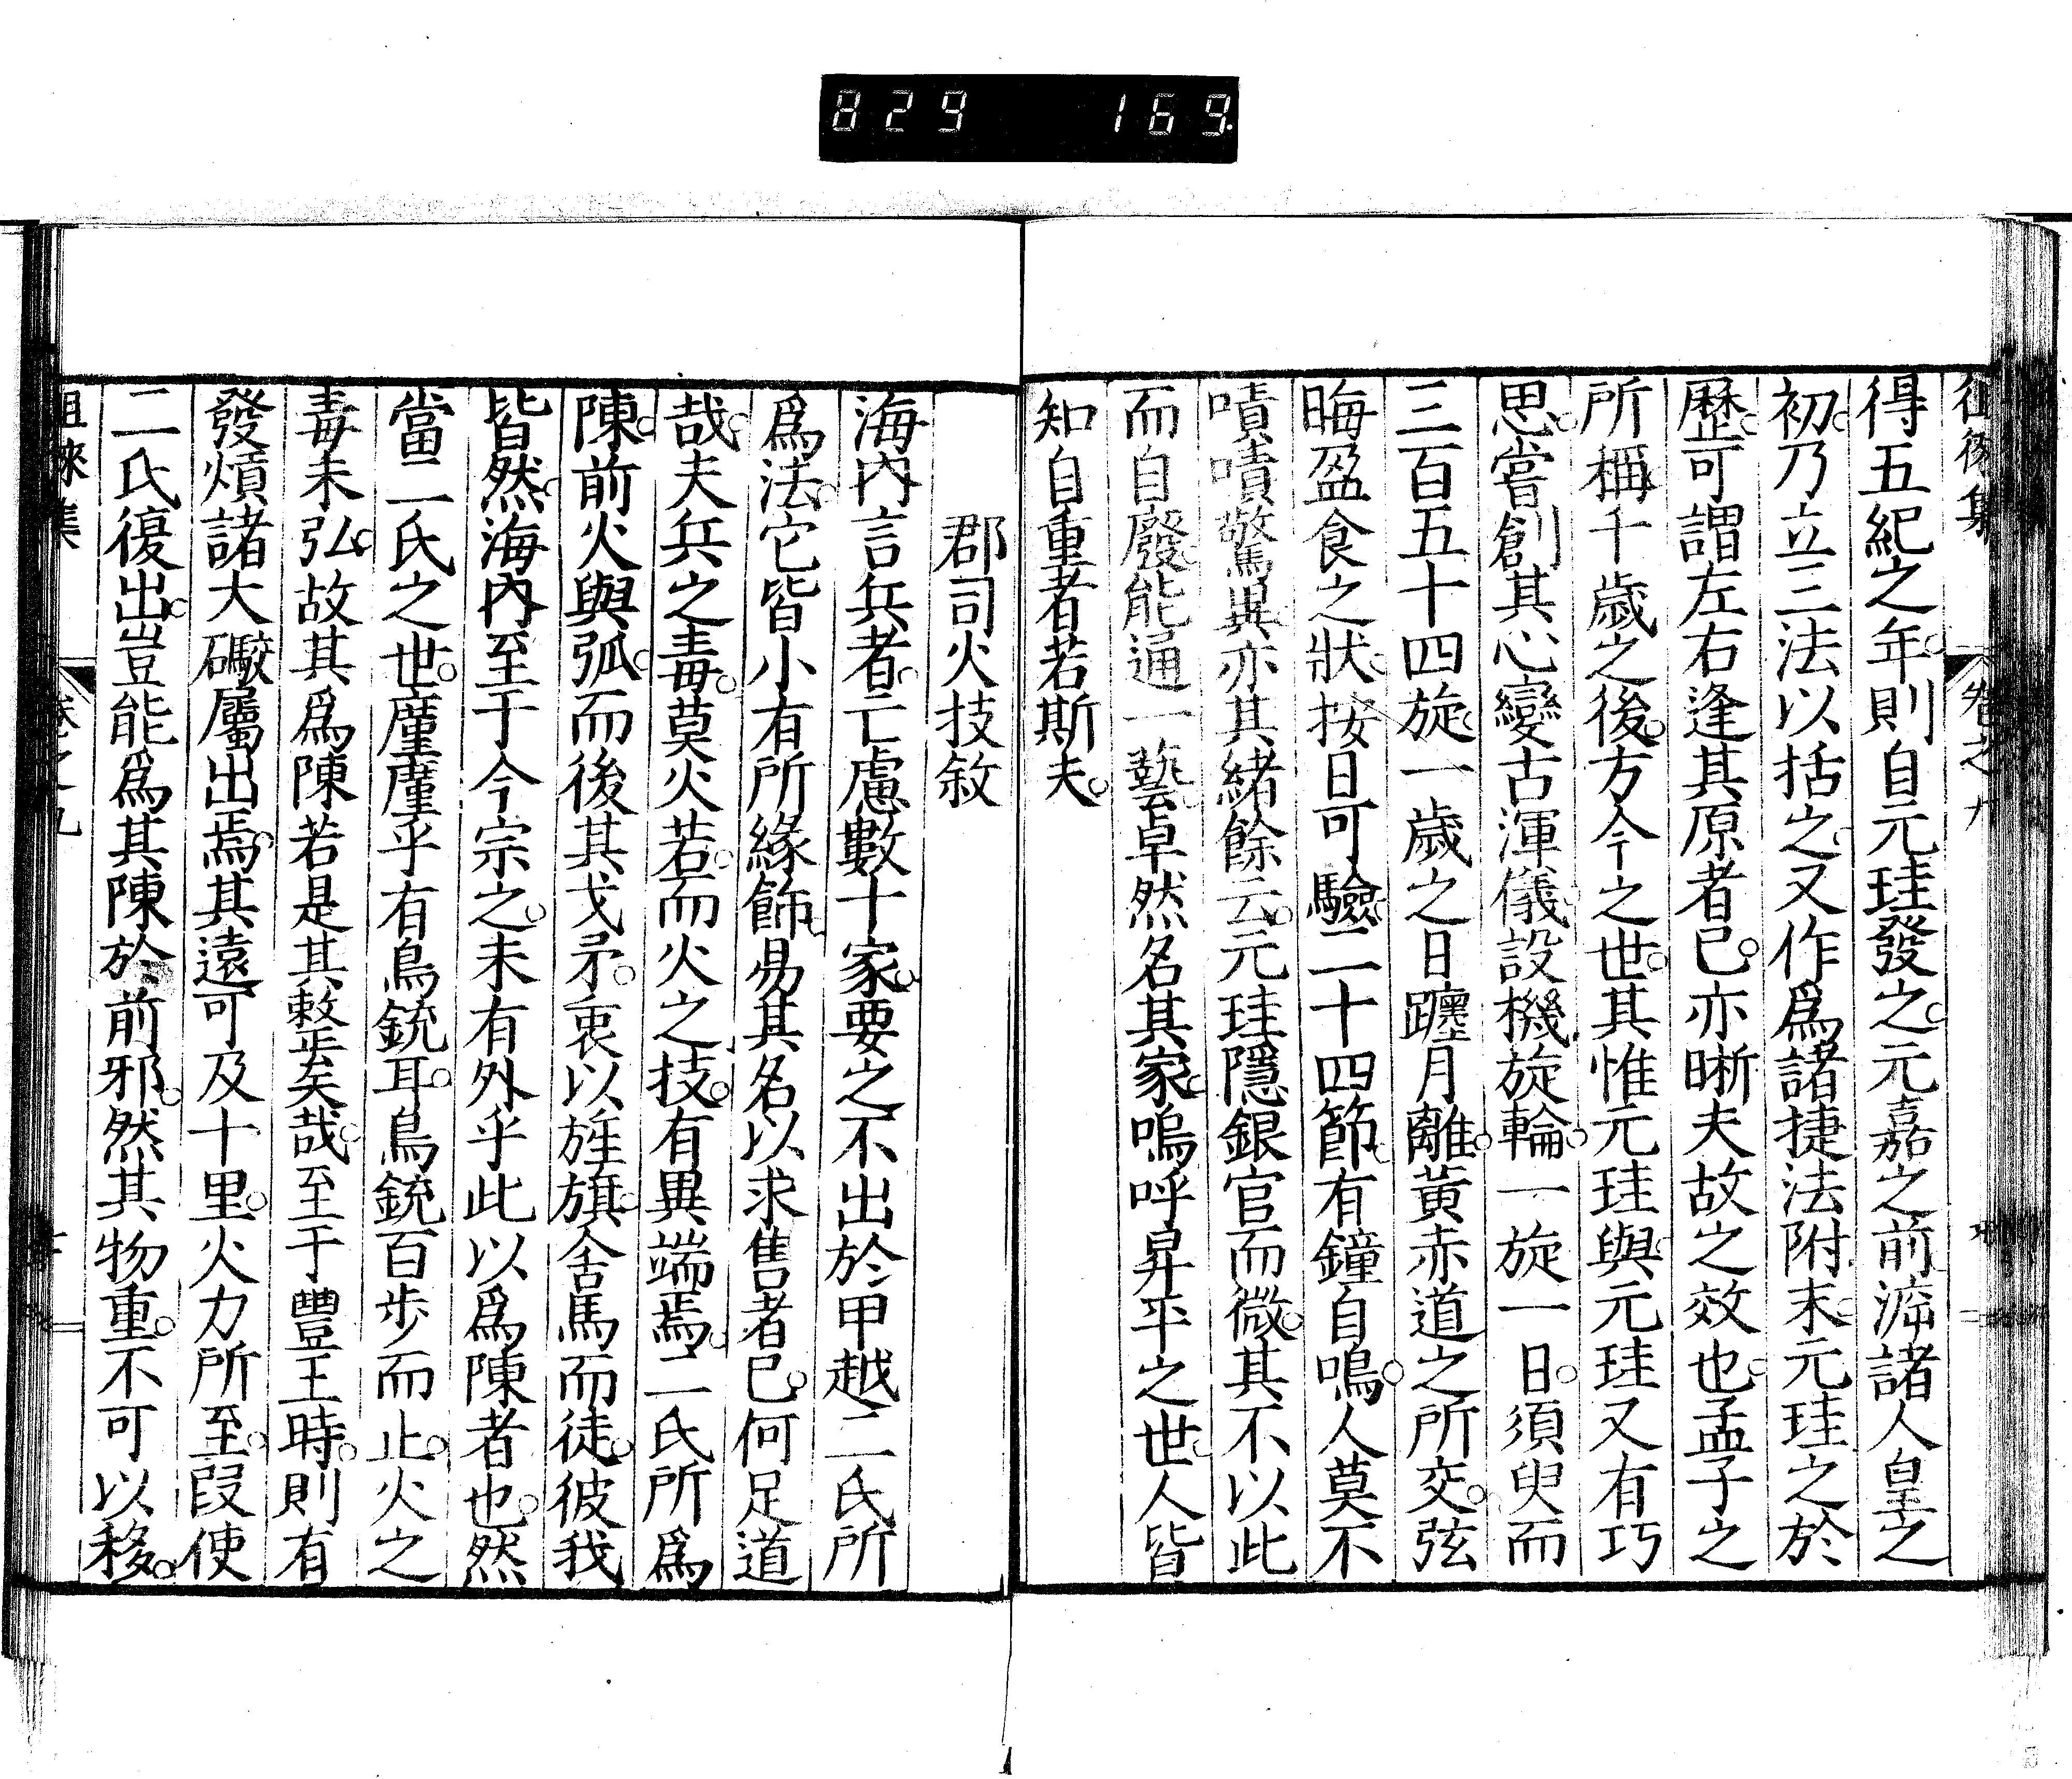 829 169
得五紀之年則自元珪發之元嘉之前泝諸人皇之
初乃立三法以括之又作爲諸捷法附末元珪之於
歷可謂左右逢其原者已亦晰夫故之效也孟子之
所稱千歲之後方今之世其惟元珪與元珪又有巧
思嘗創其心變古渾儀設機旋輪一旋一日須臾而
三百五十四旋一歲之日躔月離黃赤道之所交弦
晦盈食之狀按日可驗二十四節有鐘自鳴人莫不
嘖嘖驚異亦其緒餘云元珪隱銀官而微其不以此
而自廢能通一藝卓然名其家嗚呼昇平之世人皆
知自重者若斯夫
郡司火技敘
海內言兵者亡慮數十家要之不出於甲越二氏所
爲法它皆小有所緣飾易其名以求售者已何足道
哉夫兵之毒莫火若而火之技有異端焉二氏所爲
陳前火與弧而後其戈矛裏以旌旗舍馬而徒彼我
皆然海內至于今宗之未有外乎此以爲陳者也然
當二氏之世廑廑乎有鳥銃耳鳥銃百步而止火之
毒未弘故其爲陳若是其整矣哉至于豐王時則有
發熕諸大礮屬出焉其遠可及十里火力所至叚使
二氏復出豈能爲其陳於前邪然其物重不可以移
徂徠集
卷之九